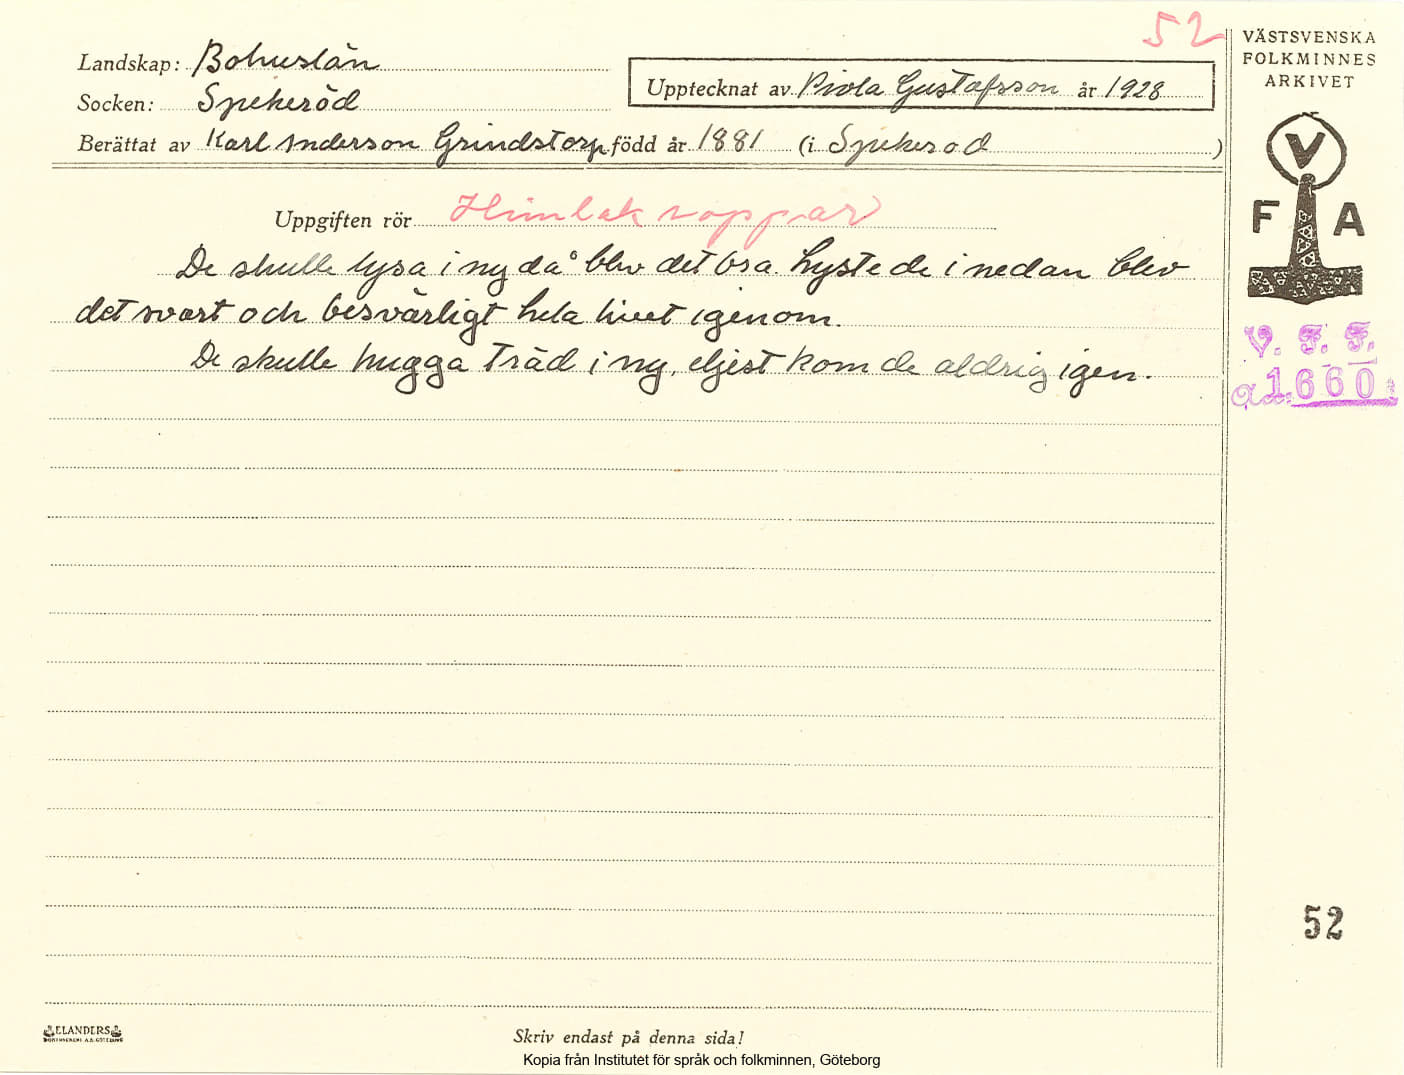 52
VÄSTSVENSKA
FOLKMINNES
ARKIVET
Landskap: Bohuslän
Upptecknat av Gustafsson år 1928
Socken: Spekeröd
Berättat av Karl Anderson Grindstorp född år 1881 (i Spekeröd )
V
F A
Uppgiften rör Himlakroppar
De skulle lysa i ny då blev det bra. Lyste de i nedan blev
det svart och besvärligt hela livet igenom.
De skulle hugga träd i ny, eljest kom de aldrig igen.
V. F. F.
1660
52
ELANDERS
Skriv endast på denna sida!
Kopia från Institutet för språk och folkminnen, Göteborg